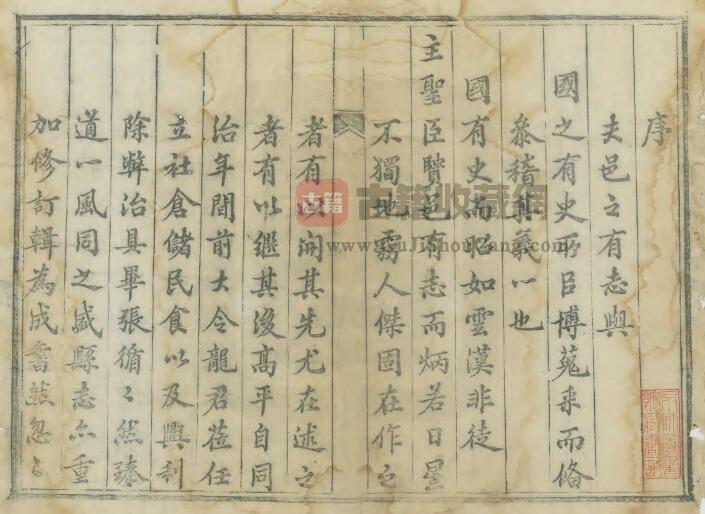 序
夫邑之有志與
國之有史所㠯博蒐来而俻
叅稽其義一也
國有史而昭如雲漢非徒
主聖臣賢邑有志而炳若日星
不獨地靈人傑固在作之
者有以開其先尤在述之
者有以継其後髙平自同
治年間前大令龍君莅任
立社倉儲民食以及興利
除弊治具畢張循〻然臻
道一風同之盛縣志亦重
加修訂輯為成書然忽〻
古籍
古籍收藏網
www.GuJiShouCang.com